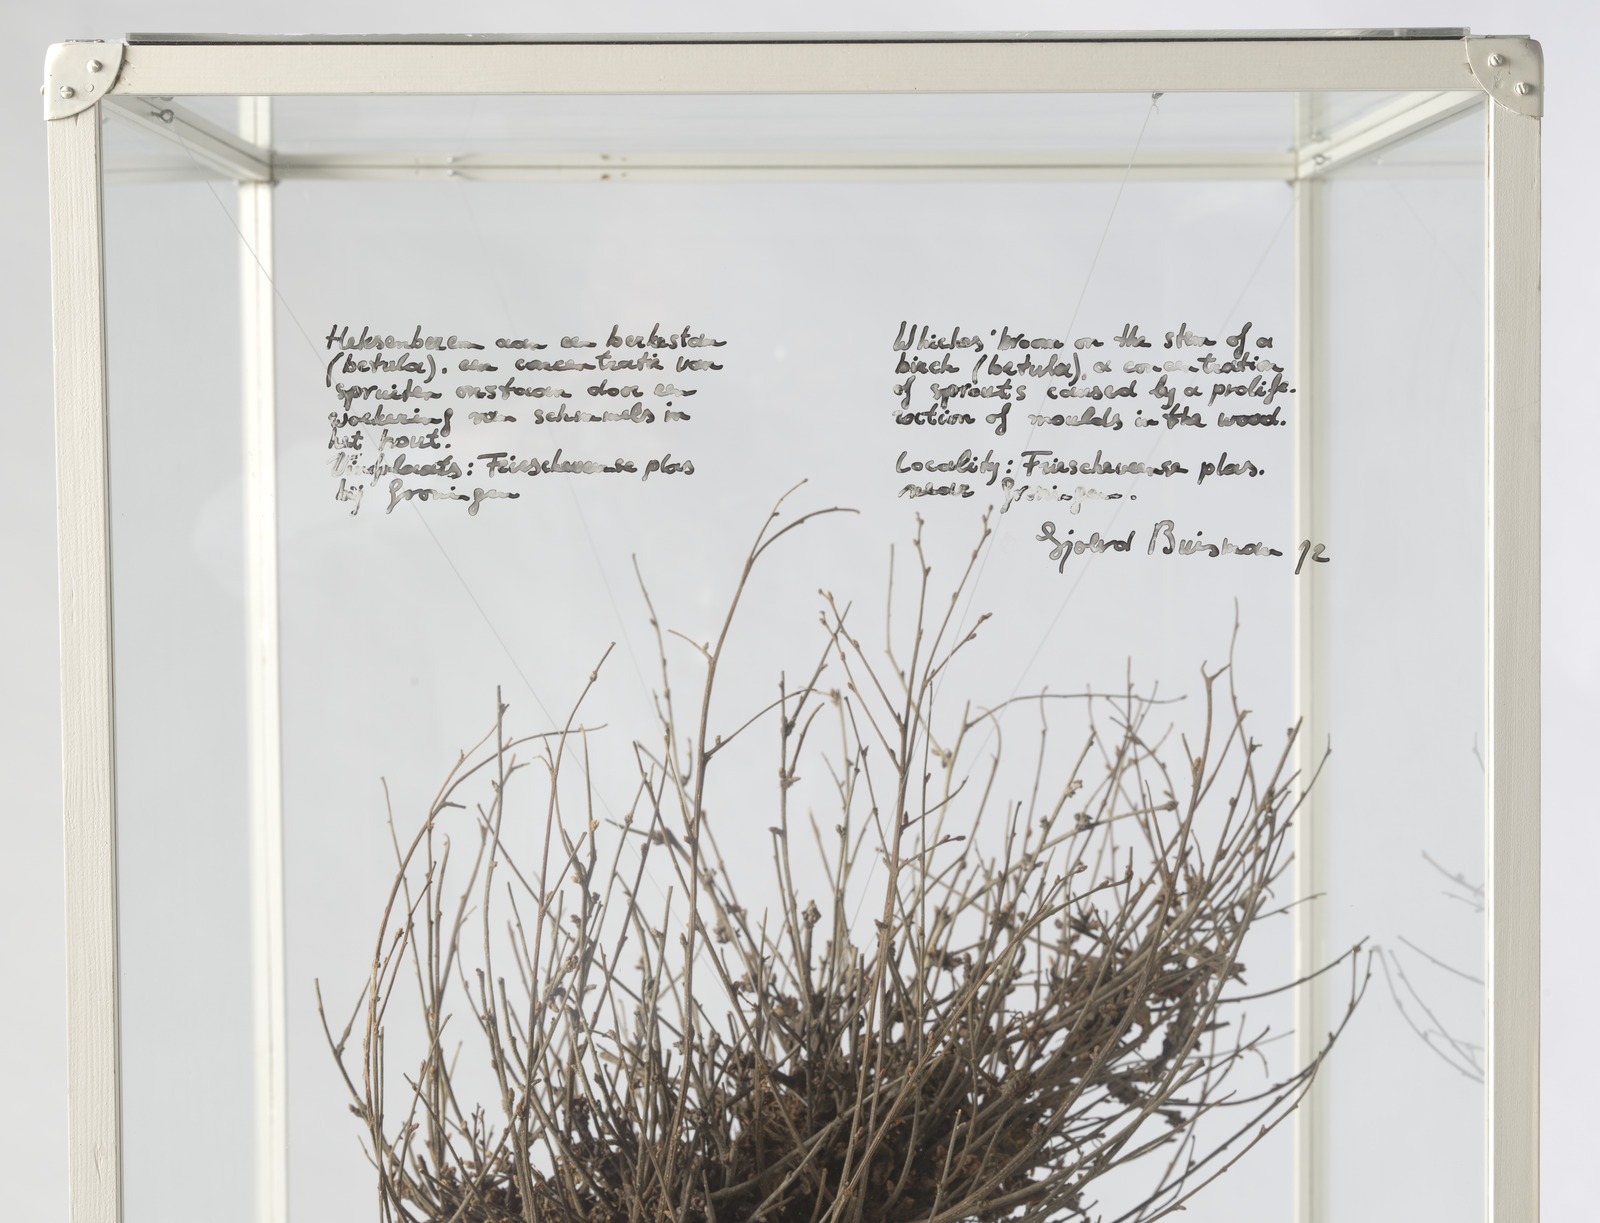 Heksenbezem aan een berkestam
(betula), een concentratie van
spruiten onstaan door een
woekering van schimmels in
het hout.
Vindplaats: Frieschaveense plas
bij Groningen
Whiches' broom on the stem of a
birch (betula), a concentration
of sprouts caused by a prolife-
ration of moulds in the wood.
Locality: Friescheveense plas.
near Groningen.
Sjoerd Buisman 92